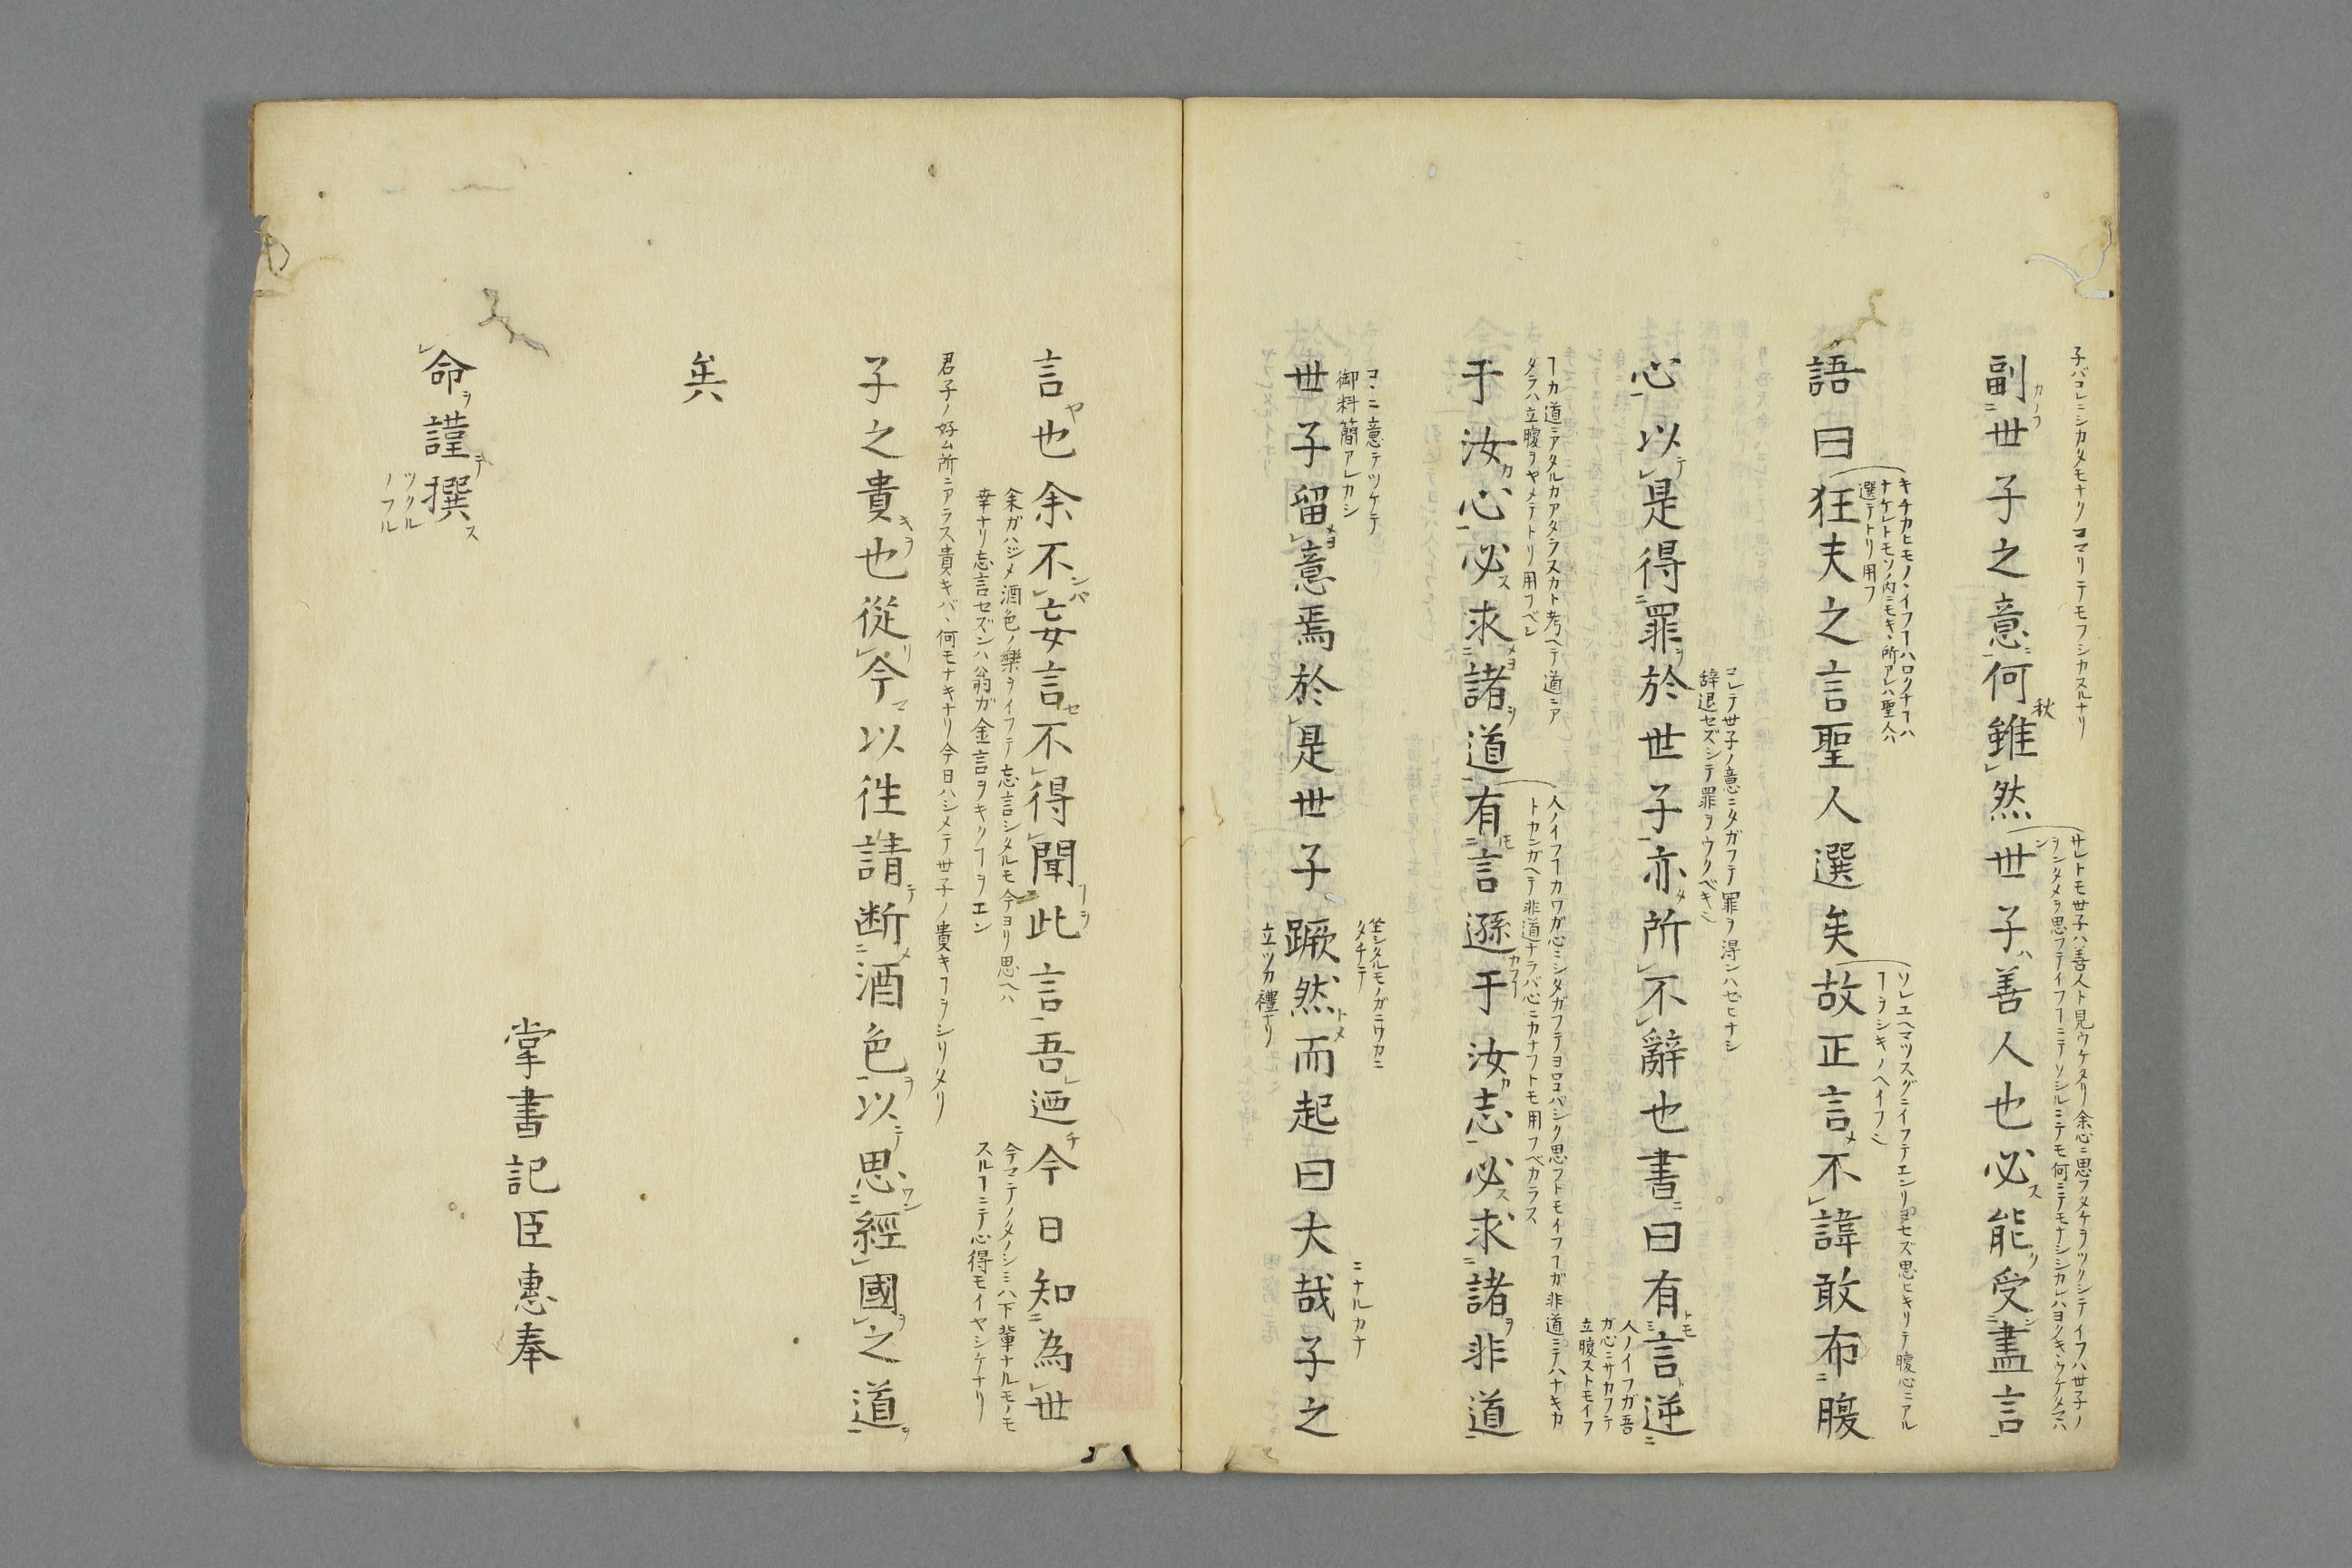 子バコレニシカタモナリノコマリテモフシカスルナリ
副世子之意何雖然世子善人也必能受盡言
サレトモ世子ハ善人ト見ウケタリ余心ニ思フタケヲツクシテイフハ世子ノ
語曰狂夫之言聖人選矣故正言不諱敢布腹
キチカヒモノヽイフヿハロクナヿハ
ナケレトモソノ内ニモキヽ所アレハ聖人ハ
選テトリ用フ
心以是得罪於世子亦所不辭也書曰有言逆
コレテ世子ノ意ニタガフテ罪ヲ得ンハゼヒナシ
辞退セズシテ罪ヲウクベキ
人ノイフガ吾
ガ心ニサカフテ
立腹ストモイフ
于汝心必求諸道有言遜于汝志必求諸非道
ヿカ道ニアタルカアタラスカト考ヘテ道ニア
タラハ立腹ヲヤメテトリ用フベシ
人ノイフヿカワガ心ニシタガフテヨロコバシク思フトモイフヿガ非道ニテハナキカ
トカンガヘテ非道ナラバ心ニカナフトモ用フベカラス
世子留意焉於是世子蹶然而起曰大哉子之
コヽニ意テツケテ
御料簡アレカシ
坐シタルモノガニワカニ
タチテ
立ツカ禮ナリ
ニナルカナ
言也余不妄言不得聞此言吾迺今日知為世
余ガハジメ酒色ノ樂ヲイフテ忘言シタルモ今ヨリ思ヘハ
幸ナリ忘言セズンハ翁ガ金言ヲキクヿヲエン
今マテノタノシミハ下輩ナルモノモ
スルヿニテ心得モイヤシケナリ
子之貴也從今以徃請断酒色以思經國之道
君子ノ好ム所ニアラス貴キバヽ何モナキナリ今日ハシメテ世子ノ貴キヿヲシリタリ
矣
掌書記臣惠奉
命謹撰
ツクル
ノフル